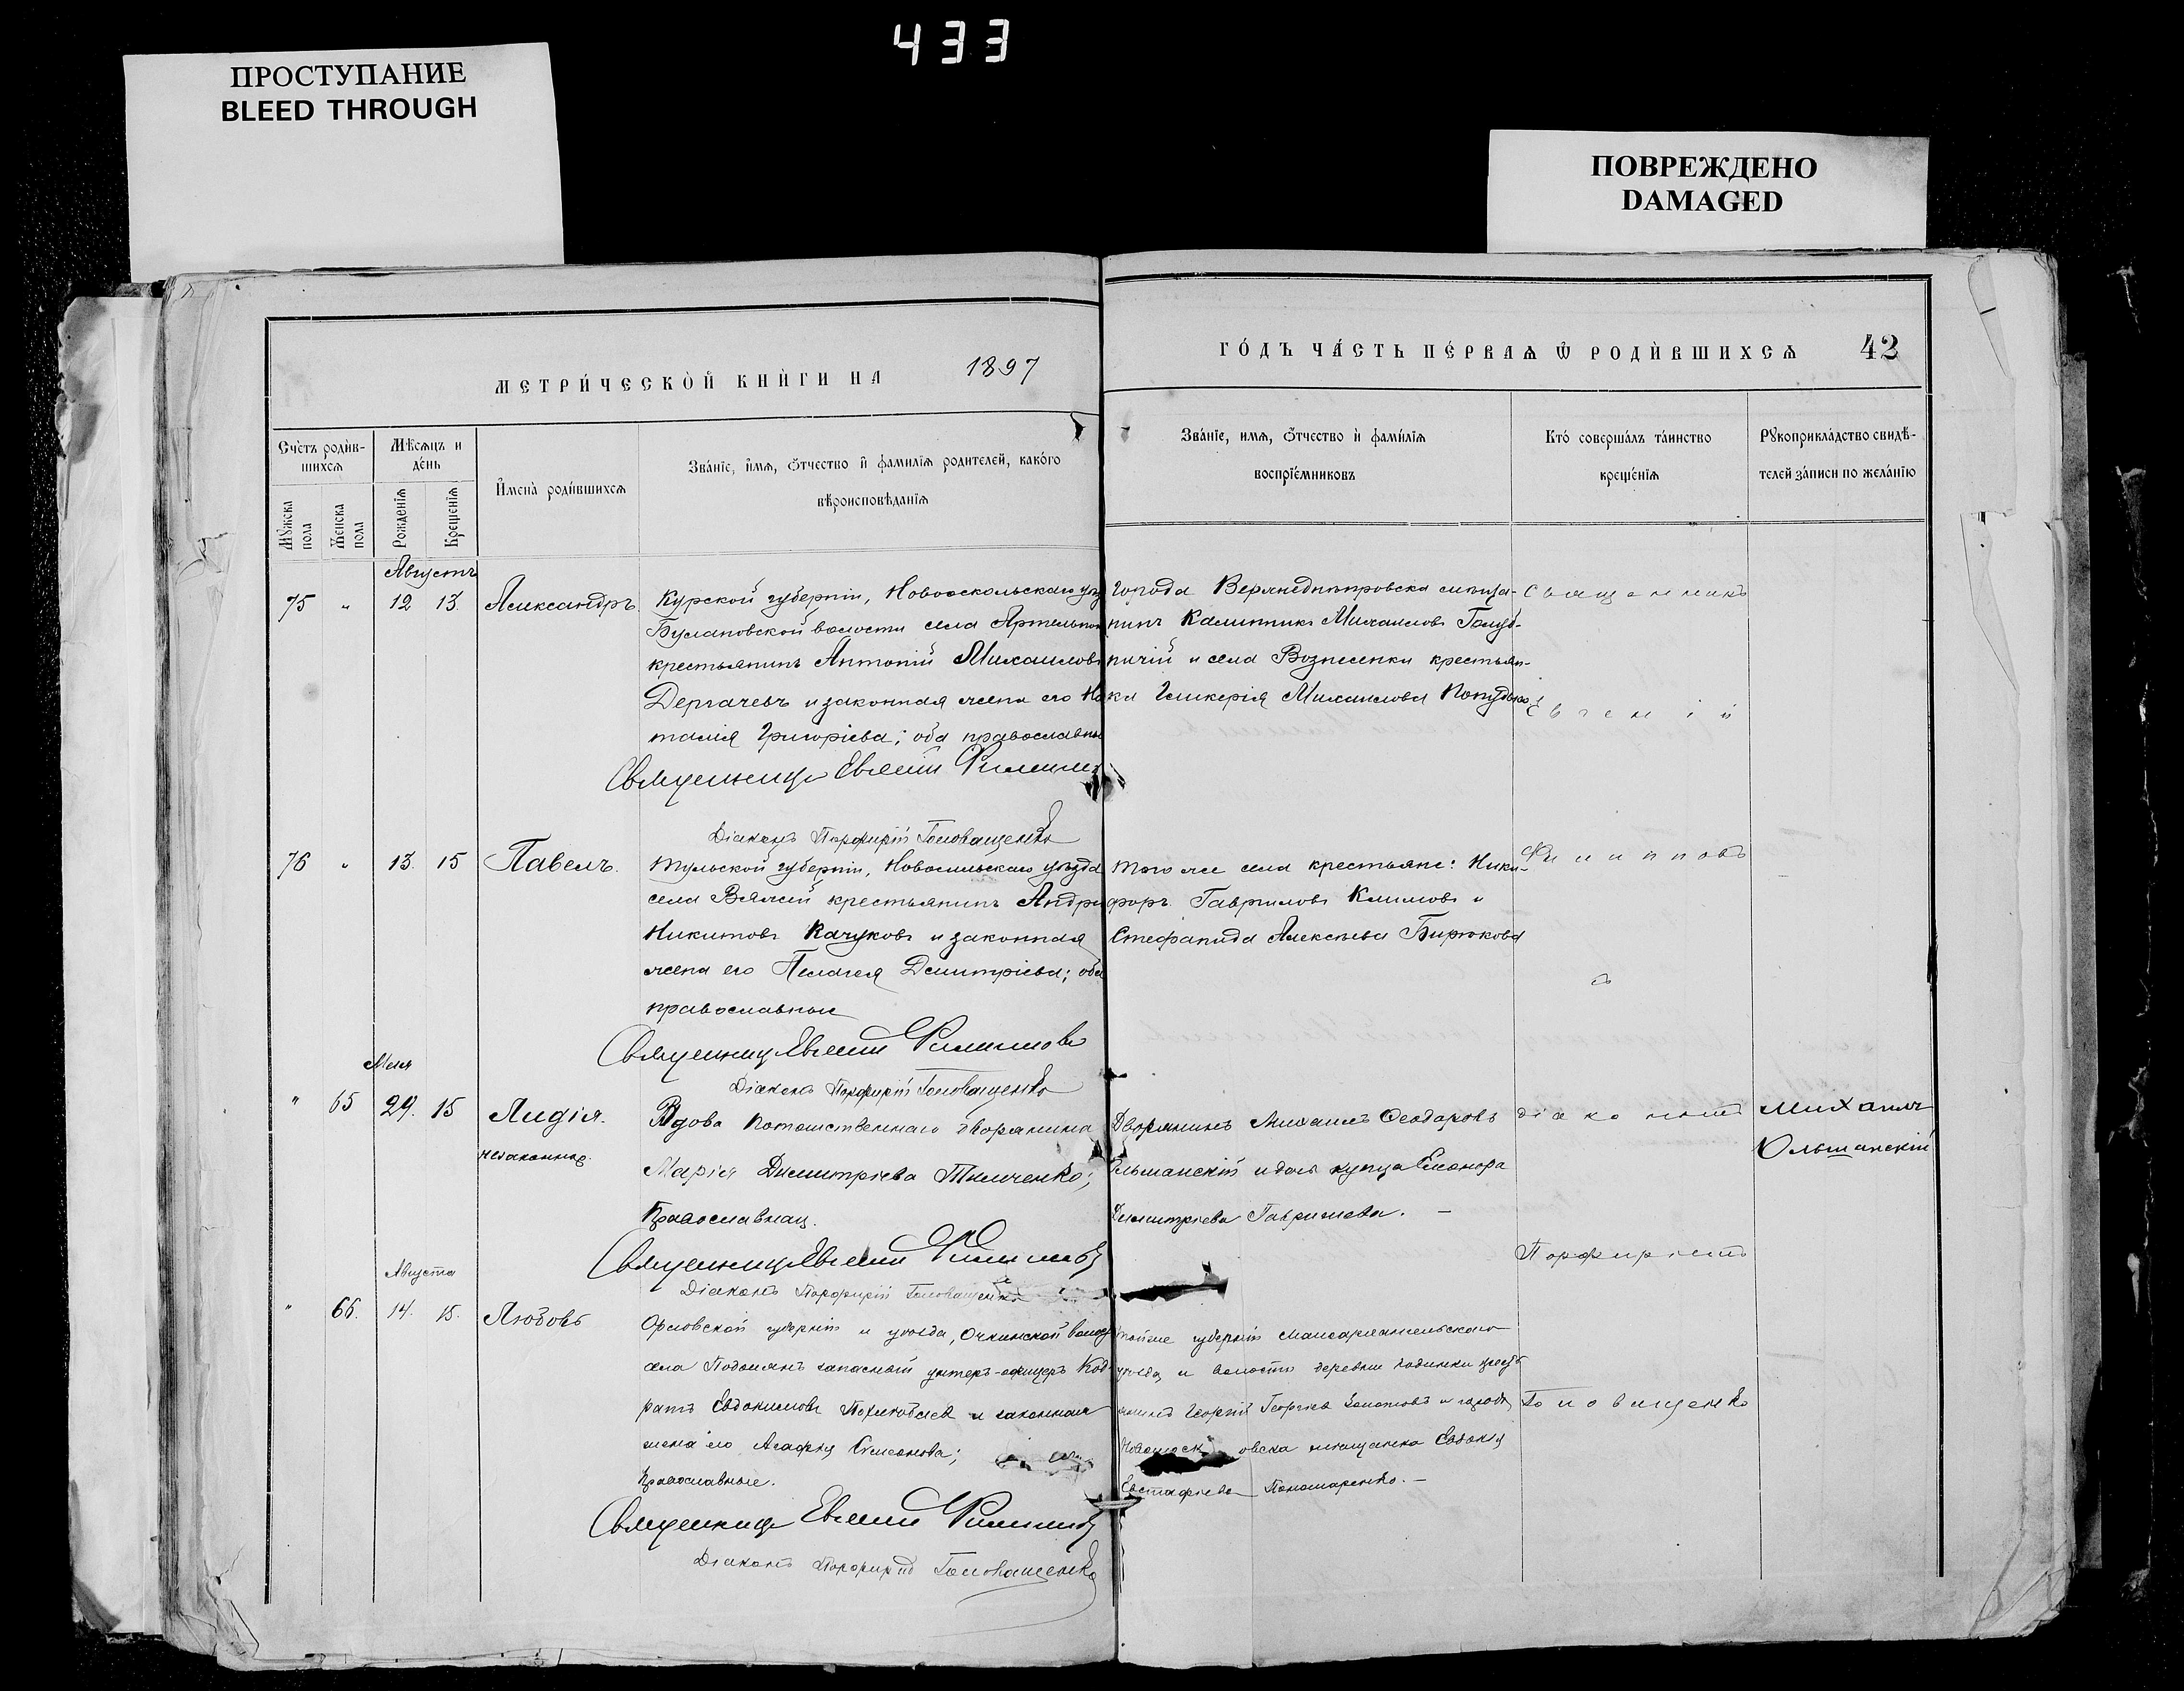 433
ПРОСТУПАНИЕ
BLEED THROUGH
ПОВРЕЖДЕНО
DAMAGED
МЕТРИ́ЧЕСКОЙ КНИ́ГИ НА 1897
ГО́ДЪ ЧА́СТЬ ПЕ́РВАѦ Ѿ РОДИ́ВШИХСѦ 42
Сче́тъ роди́в-
шихсѧ
Мѣ́сѧцъ и
де́нь
И҆мена̀ роди́вшихсѧ
Зва́нїе, и҆мѧ, ѻ҆́тчество и҆ фами́лїѧ родителей, како́гѡ
вѣроисповѣ́данїѧ
Мꙋ́жска
пола
Же́нска
пола
Рожде́нїѧ
Креще́нїѧ
Зва́нїе, имѧ, ѻ҆́тчество и҆ фами́лїѧ
воспрїе́мниковъ
Кто́ соверша́лъ та́инство
креще́нїѧ
Рꙋкоприкла́дство свидѣ́-
телей за́писи по жела́нїю
Августъ
75 " 12 13. Александръ.
Курской губерніи, Новооскольскаго
волости села
крестьянинъ Антоній Михаиловъ
Дергачевъ и законная жена его На
талія Григоріева; оба православны
Священникъ Евгеній
Діаконъ Порфирій Головащенко
города Верхнеднѣпровска мѣща-
нинъ Калинникъ Михаиловъ
и села Вознесенки крестьян-
ка Гликерія Михаилова
Священникъ
Евгеній
76 " 13. 15 Павелъ.
Тульской губерніи, Новосильскаго уѣзда
села Вяжей крестьянинъ Андрей
Никитовъ Качуковъ и законная
жена его Пелагея Димитріева; оба
православные
Священникъ Евгеній Филипповъ
Діаконъ Порфирій Головащенко
того же села крестьяне: Ники-
форъ Гавриловъ Климовъ и
Стефанида Алексѣева Бирюкова
Филипповъ
съ
Мая
" 65 29. 15 Лидія.
незаконная.
Вдова Потомственнаго дворянина
Марія Димитріева Тимченко;
Православная.
Священникъ Евгеній Филипповъ
Діаконъ Порфирій Головащенко
Дворянинъ Михаилъ Ѳеодоровъ
Ольшанскій и дочь купца Елеонора
Димитріева Гаврилова. —
діакономъ
Порфиріемъ
Михаилъ
Ольшанскій
Августа
" 66. 14. 15. Любовь
Орловской губерніи и уѣзда,
села Подолянъ запасный унтеръ-офицеръ Код-
ратъ Евдокимовъ и законная
жена его Агафія Симеонова;
Православные.
Священникъ Евгеній Филипповъ
Діаконъ Порфирій Головащенко
той же губерніи Малоархангельскаго
уѣзда, и волости деревни
Георгій Георгіевъ и города
Новомоск овска мѣщанка Евдокія
Евстафіева Пономаренко. —
Головащенко